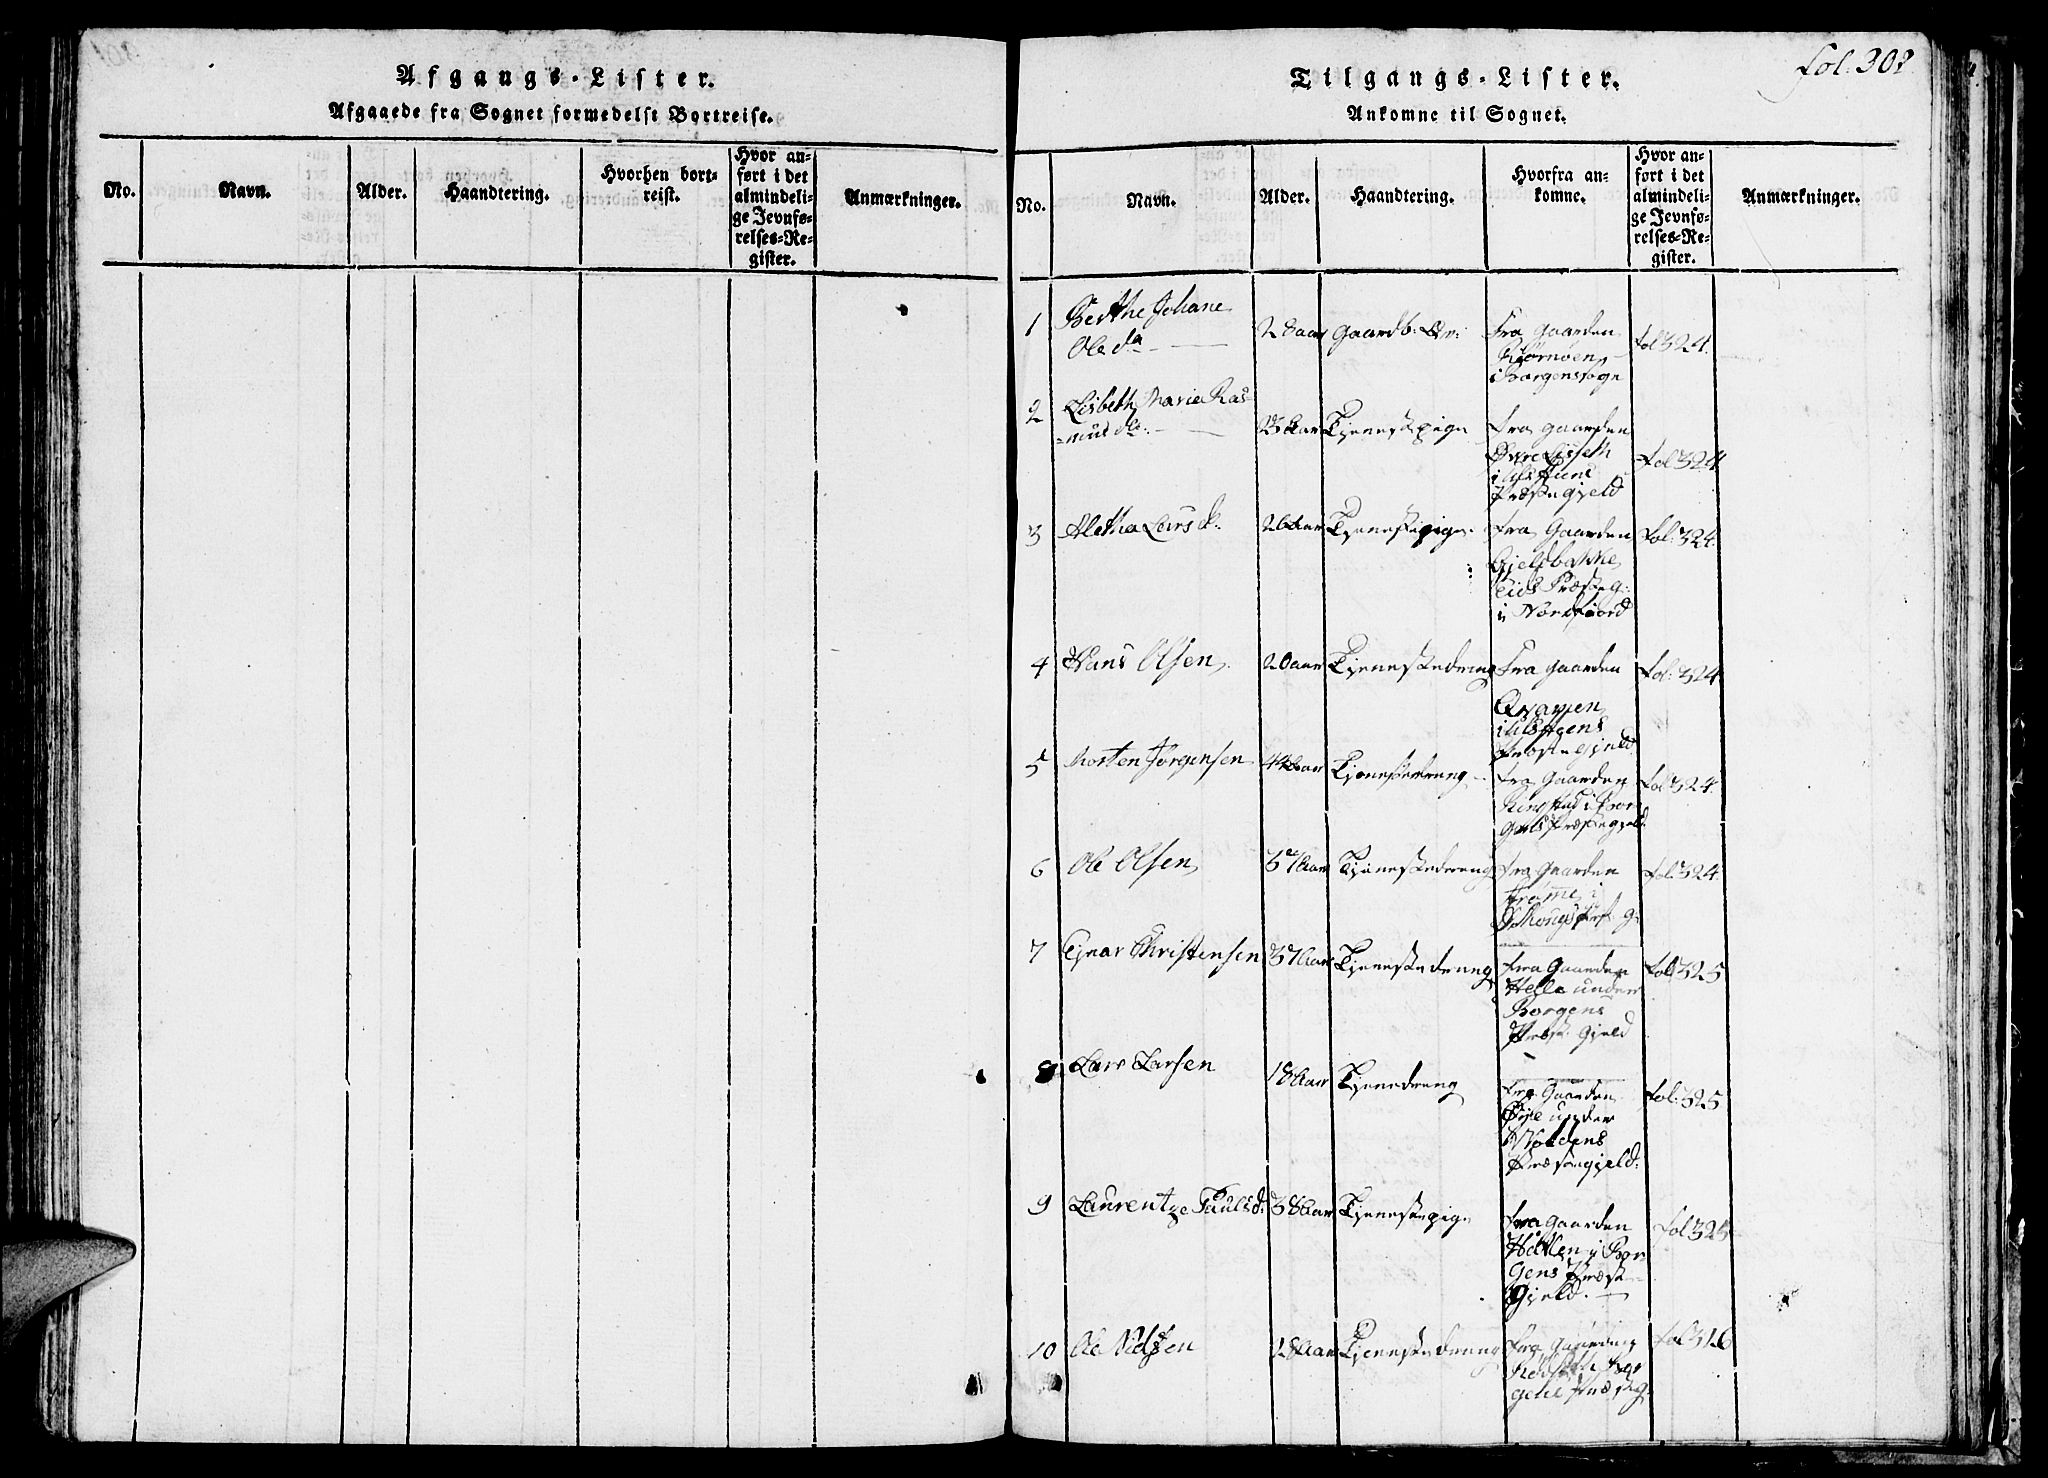 Afgangs-Lister.
Afgaaede fra Sognet formedelst Bortreise.
No.
Navn.
Alder.
Haandtering.
Hvorhen bort-
reist.
Hvor an-
ført i det
almindeli-
ge Jevnfø-
relses-Re-
gister.
Anmærkninger.
fol. 302
Tilgangs-Lister.
Ankomne til Sognet.
No.
Navn.
Alder.
Haandtering.
Hvorfra an-
komne.
Hvor an-
ført i det
almindeli-
ge Jevnfø-
relses-Re-
gister.
Anmærkninger.
1 Berthe Johane
Ole da
Gaardb:
Fra Gaarden
fol 324.
i Borgensogn
2 Lisbeth Maria Ras-
=mus da
Tjenestepige
fra Gaarden
Øvre Lisseth
i
Præstegjeld
fol 324
3 Aletha Lars d.
26 Aar
Tjenestepige
fra Gaarden
Gjeldbakke
Eids Præsteg:
i Nordfiord
fol: 324.
4 Hans Olsen
20 aar
Tjenestedreng
Fra Gaarden
i
Præstegjeld
fol: 324
5 Morten Jørgensen
Tjenestedreng
fra Gaarden
Ringstad i Bor-
gens Præstegjeld
fol 324.
6 Ole Olsen
37 Aar
Tjenestedreng
fra Gaarden
i
fol: 324.
7 Ejnar Christensen
37 Aar
Tjenestedreng
fra Gaarden
Helle under
Borgens
Præst Gjeld
fol 325
8 Lars Larsen
18 Aar
Tjenedreng
fra Gaarden
Øye under
Præstegjeld.
fol: 325
9 Laurentze Paulsd.
38 Aar
Tjenestepige
fra Gaarden
i Bor-
gens Præste
Gjeld.
fol 325
10 Ole Nielsen
28 Aar
Tjenestedreng
fra Gaarden
Bor
gens Præsteg.
fol 326